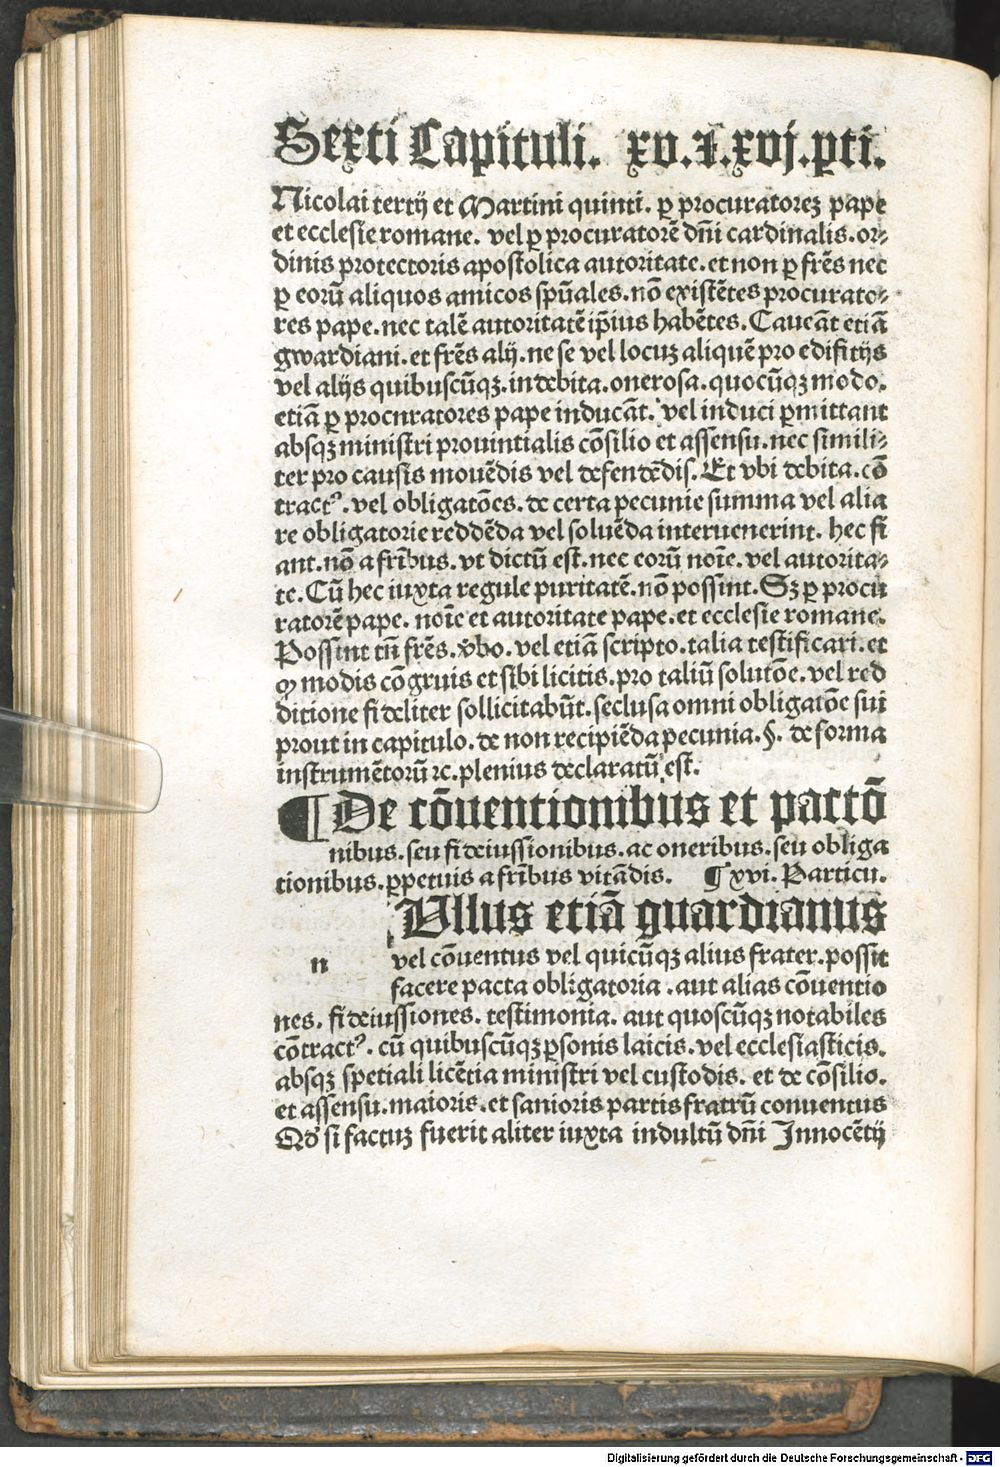 Sexti Capituli. xv. ⁊. xvj. pti.
Nicolai tertij et Martini quinti. ꝑ procuratoreꝫ pape
et ecclesie romane. vel ꝑ procuratorē dn̄i cardinalis. or⸗
dinis protectoris apostolica autoritate. et non ꝑ fr̄es nec
ꝑ eorū aliquos amicos spūales. nō existētes procurato⸗
res pape. nec talē autoritatē ip̄ius habētes. Caueāt etiā
gwardiani. et fr̄es alij. ne se vel locuꝫ aliquē pro edifitijs
vel alijs quibuscūqꝫ. indebita. onerosa. quocūqꝫ modo.
etiā ꝑ procnratores pape inducāt. vel induci ꝑmittant
absqꝫ ministri prouintialis cōsilio et assensu. nec simili⸗
ter pro causis mouēdis vel defendēdis. Et vbi debita. cō
tractꝰ. vel obligatōes. de certa pecunie summa vel alia
re obligatorie reddēda vel soluēda interuenerint. hec fi
ant. nō a fr̄ibus. vt dictū est. nec eorū noīe. vel autorita⸗
te. Cū hec iuxta regule puritatē. nō possint. Sꝫ ꝑ procu
ratorē pape. noīe et autoritate pape. et ecclesie romane.
Possint tn̄ fr̄es. v̄bo. vel etiā scripto. talia testificari. et
ꝙ modis cōgruis et sibi licitis. pro taliū solutōe. vel red
ditione fideliter sollicitabūt. seclusa omni obligatōe sui
prout in capitulo. de non recipiēda pecunia. §. de forma
instrumētorū ⁊c. plenius declaratū est.
¶ De cōuentionibus et pactō
nibus. seu fideiussionibus. ac oneribus. seu obliga
tionibus. ꝑpetuis a fr̄ibus vitādis. ¶ xvi. Particu.
n Ullus etiā guardianus
vel cōuentus vel quicūqꝫ alius frater. possit
facere pacta obligatoria. aut alias cōuentio
nes. fideiussiones. testimonia. aut quoscūqꝫ notabiles
cōtractꝰ. cū quibuscūqꝫ ꝑsonis laicis. vel ecclesiasticis.
absqꝫ spetiali licētia ministri vel custodis. et de cōsilio.
et assensu. maioris. et sanioris partis fratrū conuentus
Qd̓ si factuꝫ fuerit aliter iuxta indultū dn̄i Innocētij
Digitalisierung gefördert durch die Deutsche Forschungsgemeinschaft - DFG